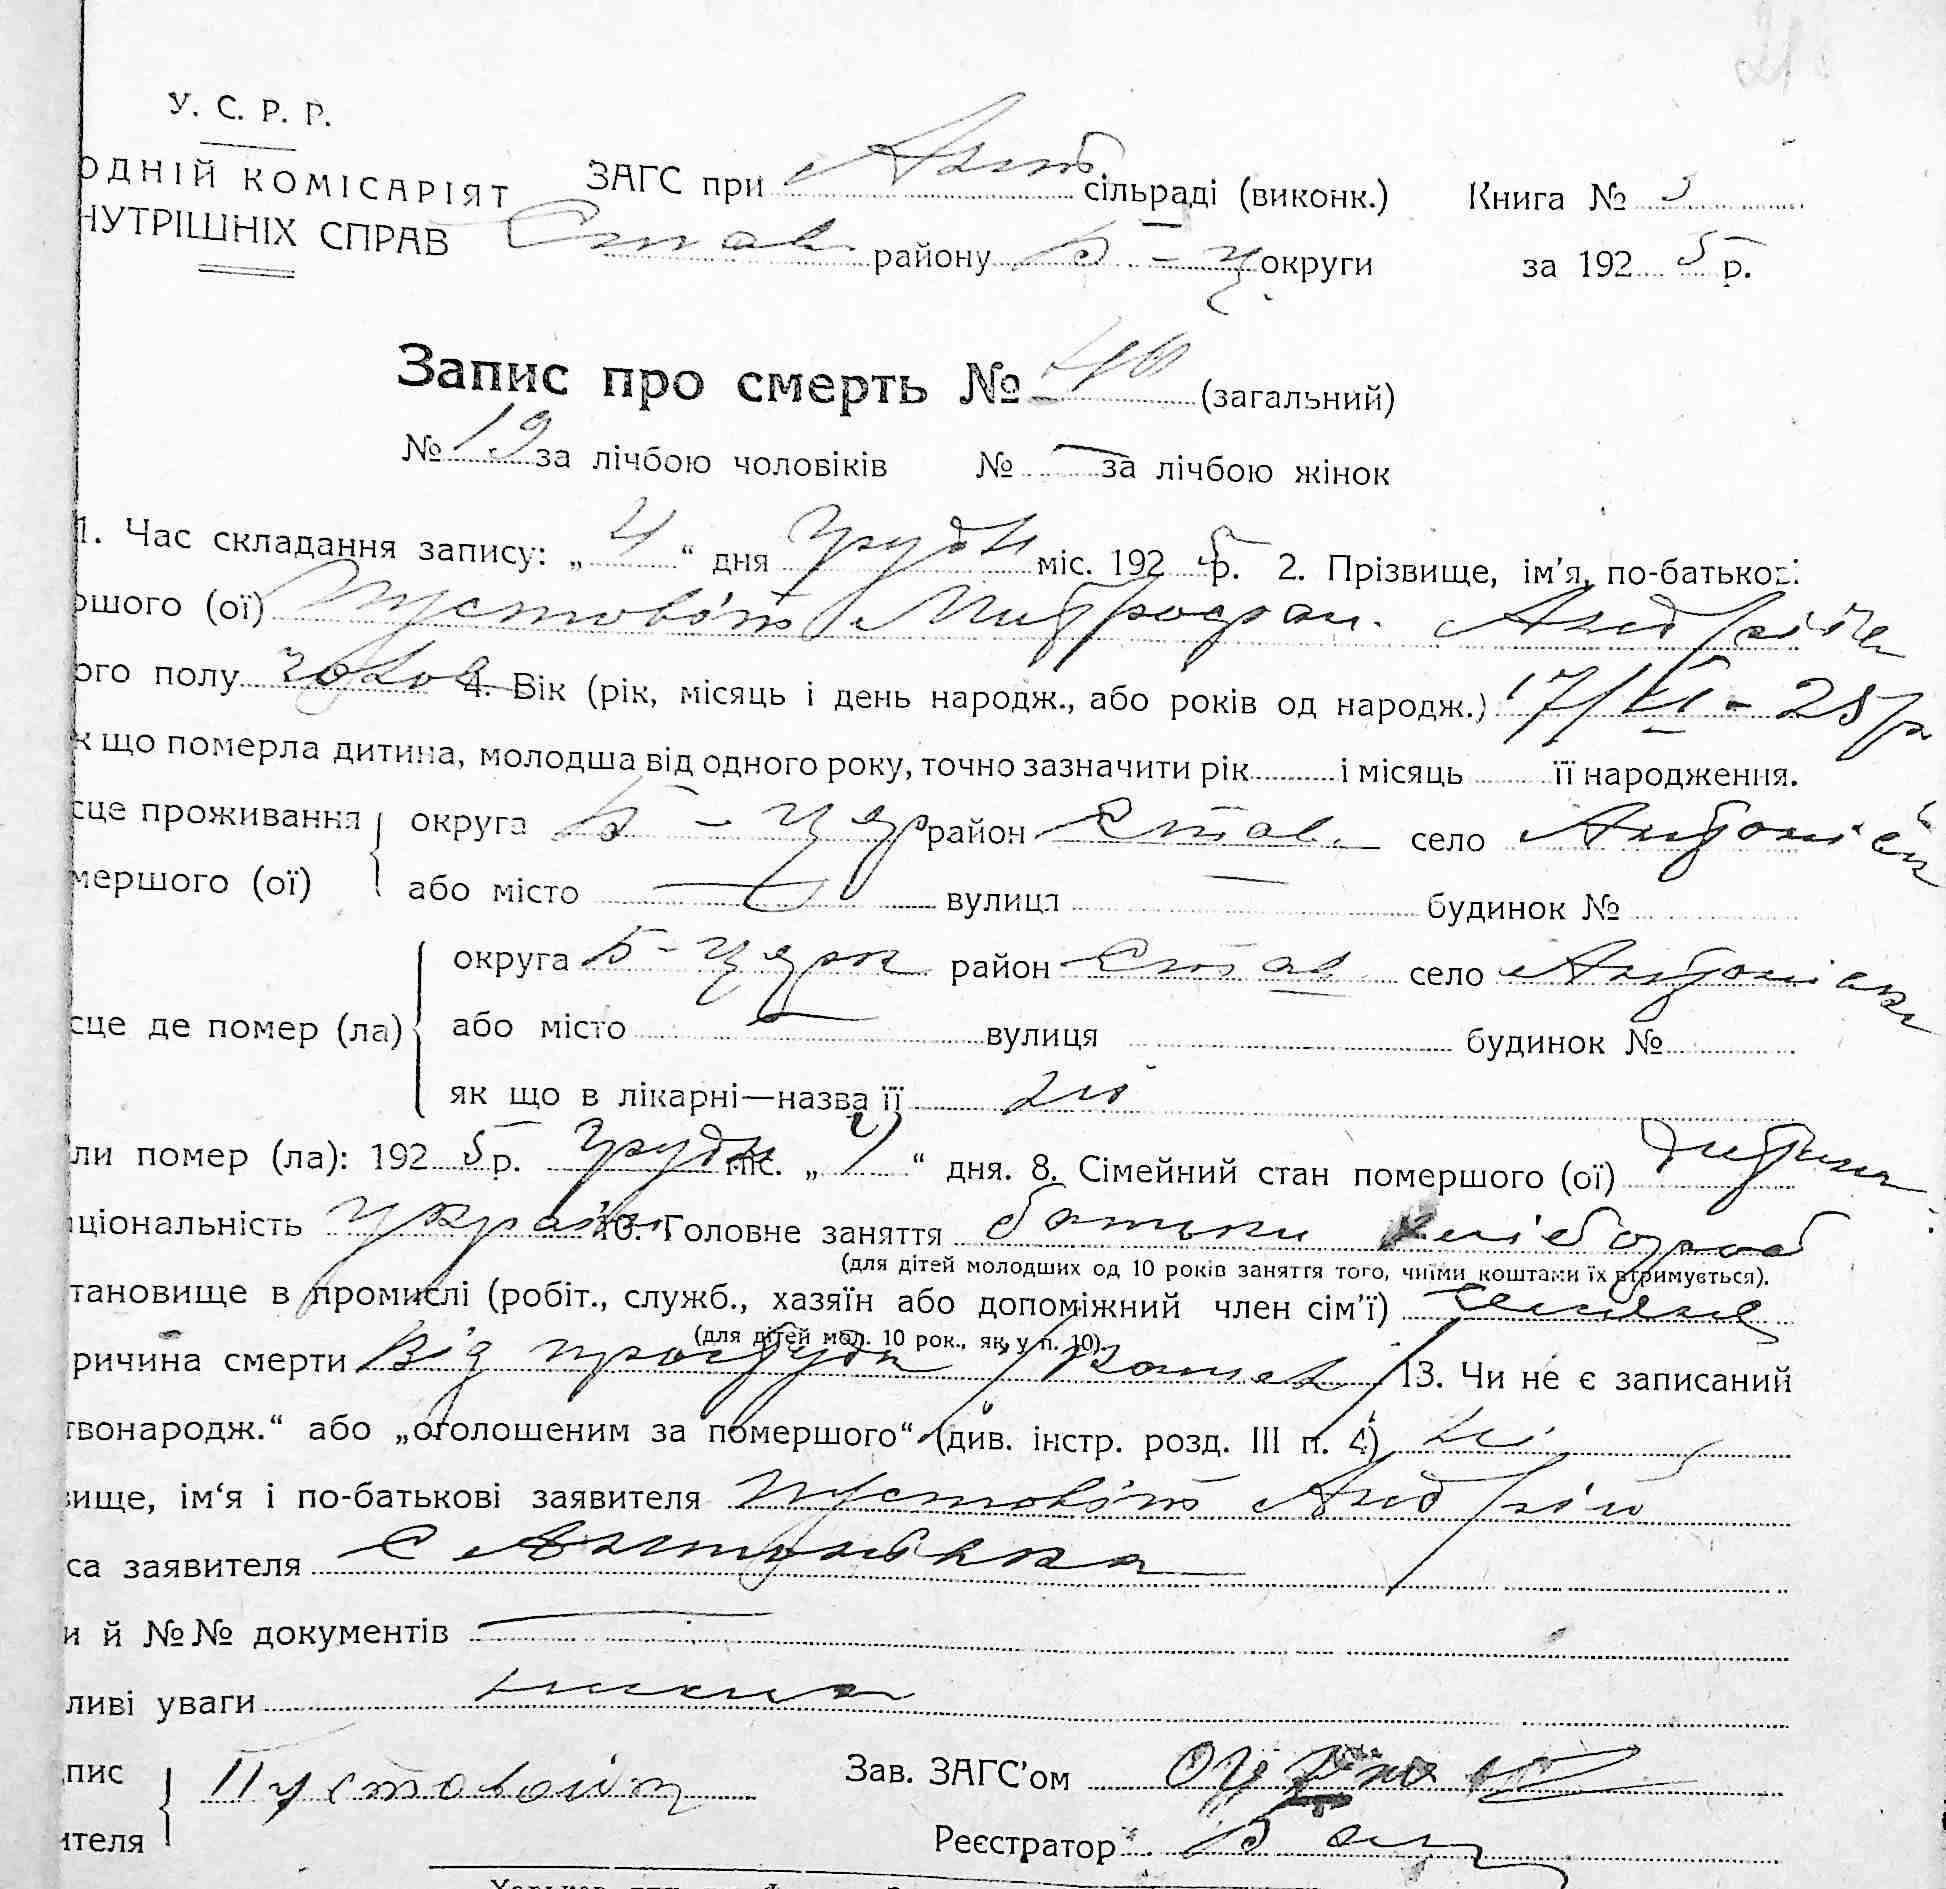 У. С. Р. Р.
ОДНІЙ КОМІСАРІЯТ
НУТРІШНІХ СПРАВ
ЗАГС при Ант сільраді (виконк.) Книга № 3
Став району Б-ц округи за 1925 р.
Запис про смерть № 40 (загальний)
№ 19 за лічбою чоловіків № — за лічбою жінок
1. Час складання запису: „4“ дня грудн міс. 1925 р. 2. Прізвище, ім’я, по-батькові
ршого (ої) Пустовіт Митрофан. Андрієв
ого полу чолов 4. Вік (рік, місяць і день народж., або років од народж.) 17/VI - 25 р
к що померла дитина, молодша від одного року, точно зазначити рік і місяць її народження.
сце проживання округа Б-Цер район Став. село Антонівк
мершого (ої) або місто — вулиця будинок №
округа Б-Церк район Став село Антонівк
сце де помер (ла) або місто — вулиця будинок №
як що в лікарні—назва її ні
ли помер (ла): 1925 р. грудн міс. „ “ дня. 8. Сімейний стан помершого (ої) дитина
ціональність україн 10. Головне заняття батьки хлібороб
(для дітей молодших од 10 років заняття того, чиїми коштами їх втримується).
тановище в промислі (робіт., служб., хазяїн або допоміжний член сім’ї)
(для дітей мол. 10 рок., як у п. 10).
ричина смерти Від простуди /Кашель/ 13. Чи не є записаний
твонародж.“ або „оголошеним за помершого“ (див. інстр. розд. III п. 4) ні
вище, ім‘я і по-батькові заявителя Пустовіт Андрій
са заявителя с Антонівка
и й №№ документів —
ливі уваги
пис Пустовойт Зав. ЗАГС’ом
ителя Реєстратор